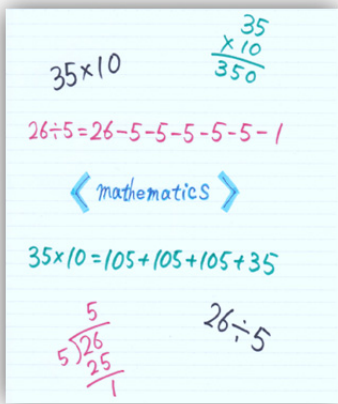 35×10
35
×10
350
26÷5=26-5-5-5-5-5-1
《 mathematics 》
35×10=105+105+105+35
5
5)26
25
1
26÷5